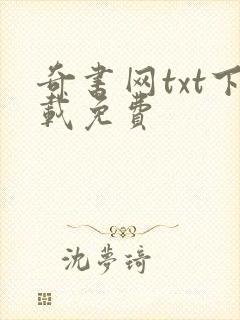 奇书网txt下
载免费
沈梦琦